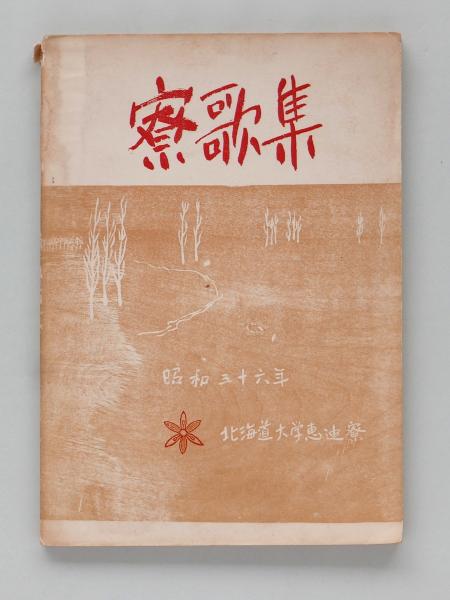 寮歌集
昭和三十六年
北海道大学恵迪寮